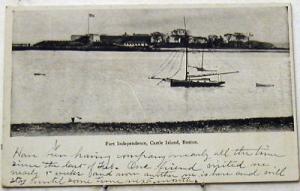 Fort Independence, Castle Island, Boston.
Have been having company nearly all the time
since the last of Feb. One friend visited me
nearly 2 weeks and now another one is here and will
stay until some time next month.